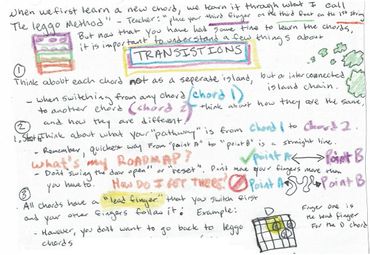 When we first learn a new chord, we learn it through what I call
"The leggo Method" - Teacher: "place your third finger on the third fret on the 1st string
But now that you have had some time to learn the chords,
it is important to understand a few things about
TRANSISTIONS
① Think about each chord not as a seperate island, but a interconnected
island chain.
- When switching from any chord (chord 1)
to another chord (chord 2) think about how they are the same,
and how they are different.
② Think about what your "pathway" is from chord 1 to chord 2.
- Remember, quickest way from "point A" to "point B" is a straight line.
What's my ROADMAP? Point A Point B
- Don't swing the door open" or "reset". Don't move your fingers more than
you have to. How DO I GET THERE? Point A Point B
③ All chords have a "lead finger" that you switch first
and your other fingers follow it! Example:
- However, you don't want to go back to leggo
chords
D
Finger one
is the lead finger
For the D chord